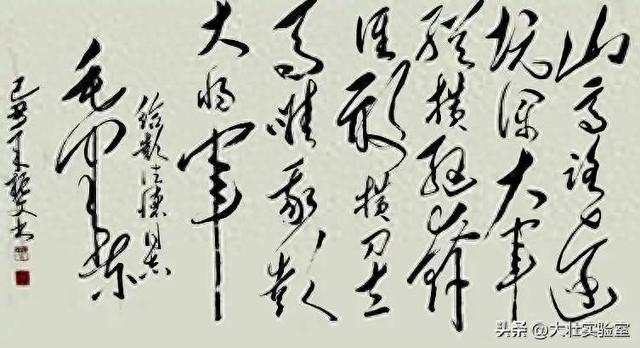 山高路远
坑深大军
纵横驰奔
谁敢横刀立
马唯我彭
大将军
给彭德怀同志
毛泽东
己丑年
头条 @大壮实验室